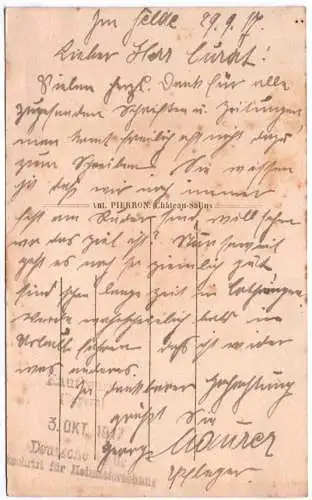 Im Felde 29.9.17.
Lieber Herr Curat!
Vielen herzl. Dank für alle
zugesandten Schriften u. Zeitungen,
man kommt freilich oft nicht dazu
zum Schreiben. Sie wissen
ja daß wir noch immer
fest am Ruder sind, will sehen
wo das Ziel ist? Nur soweit
geht es noch so ziemlich gut
sind schon lange Zeit in Lothringen
werde wahrscheinlich bald in
Urlaub fahren, das ist wider
was anderes.
In dankbarer Hochachtung
grüßt Sie
Georg Maurer
Pfleger
Ant. PIERRON, (Château-Salins)
3. OKT. 1917
Deutsche
für Heimatforschung